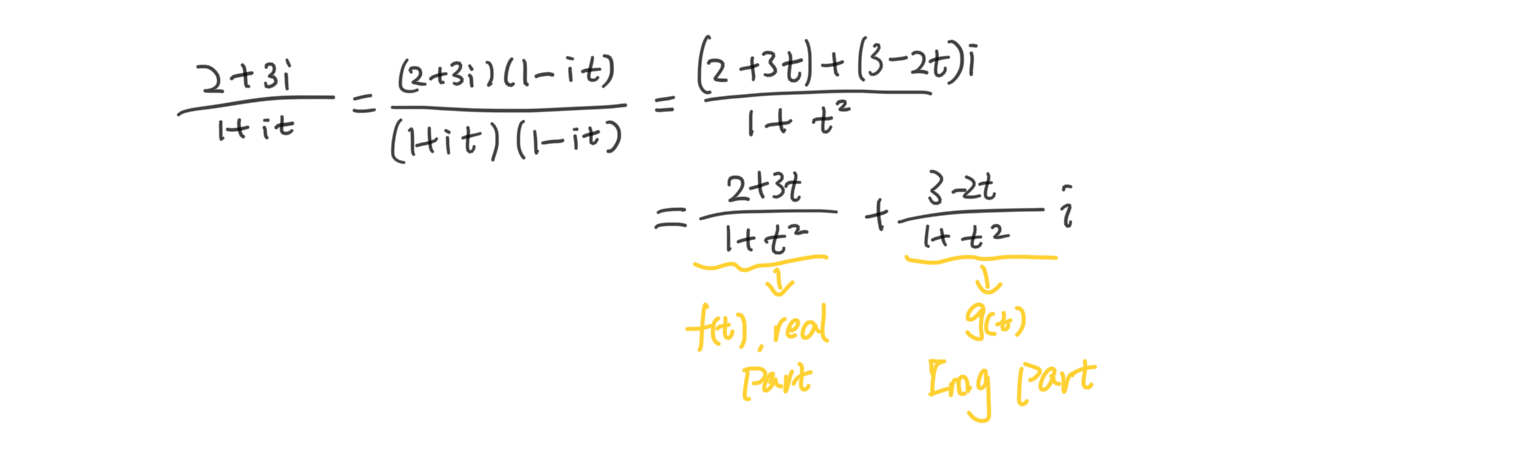 (2+3i)/(1+it) = ((2+3i)(1-it))/((1+it)(1-it)) = ((2+3t)+(3-2t)i)/(1+t²)
= (2+3t)/(1+t²) + (3-2t)/(1+t²) i
f(t), real g(t)
part Imag part